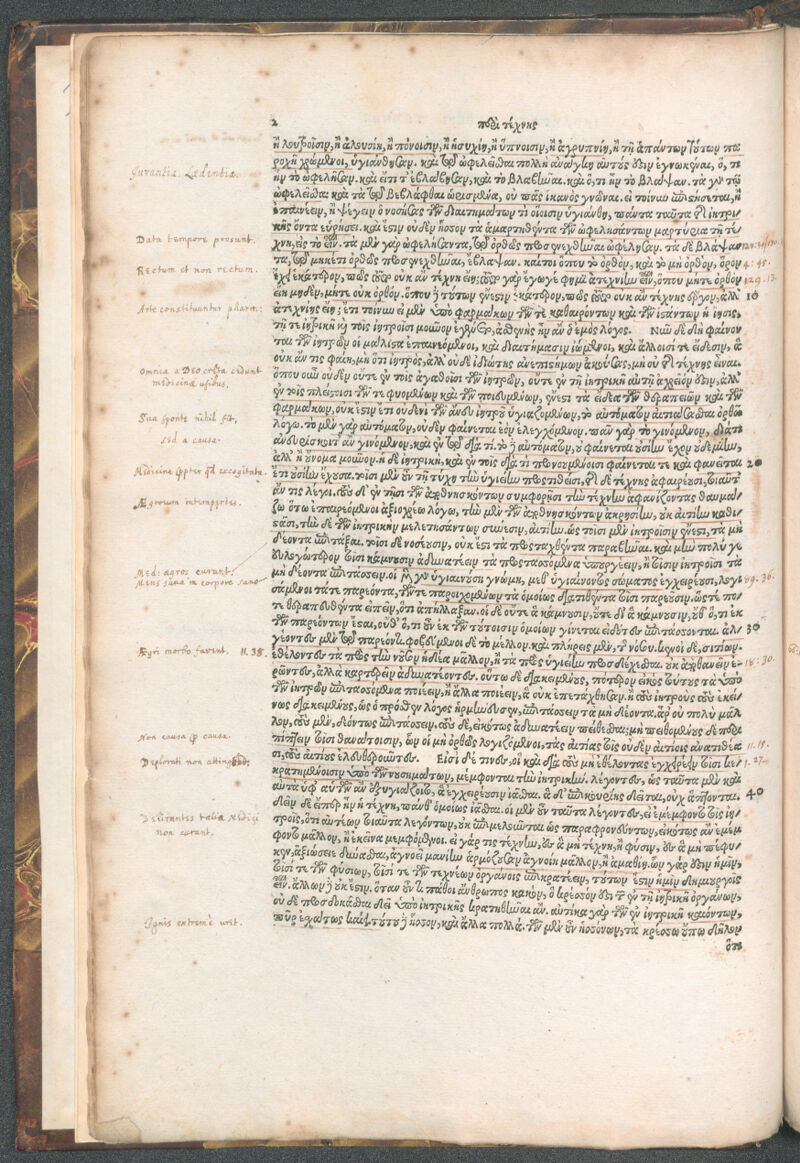 2
περὶ τέχνης
ἢ λουτροῖσιν, ἢ ἀλουσίη, ἢ πόνοισιν, ἢ ἡσυχίῃ, ἢ ὕπνοισιν, ἢ ἀγρυπνίῃ, ἢ τῇ ἁπάντων τούτων τα
ραχῇ χρώμενοι, ὑγιάνθησαν. καὶ τῷ ὠφελεῖσθαι πολλὴ ἀνάγκη αὐτούς ἐστιν ἐγνωκέναι, ὅ, τι
ἦν τὸ ὠφελῆσαν. καὶ εἴ τι τ' ἐβλάβησαν, καὶ τῷ βλαβῆναι. καὶ ὅ,τι ἦν τὸ βλάψαν. τὰ γὰρ τῷ
ὠφελεῖσθαι καὶ τὰ τῷ βεβλάφθαι ὡρισμένα, οὐ πᾶς ἱκανὸς γνῶναι. εἰ τοίνυν ἐπιστήσεται, ἢ
ἐπαινέειν, ἢ ψέγειν ὁ νοσήσας τῶν διαιτημάτων τι οἷσιν ὑγιάνθη, πάντα ταῦτα τῆς ἰητρι-
κῆς ὄντα εὑρήσει. καὶ ἔστιν οὐδὲν ἧσσον τὰ ἁμαρτηθέντα τῶν ὠφελησάντων μαρτύρια τῇ τέ-
χνῃ, εἰς τὸ εἶναι. τὰ μὲν γὰρ ὠφελήσαντα, τῷ ὀρθῶς προσενεχθῆναι ὠφέλησαν. τὰ δὲ βλάψαν-
τα, τῷ μηκέτι ὀρθῶς προσενεχθῆναι, ἔβλαψαν. καίτοι ὅπου τὸ ὀρθὸν, καὶ τὸ μὴ ὀρθὸν, ὅρον
ἔχει ἑκάτερον, πῶς τοῦτο οὐκ ἂν τέχνη εἴη; τοῦτο γὰρ ἔγωγε φημὶ ἀτεχνίην εἶναι, ὅπου μήτε ὀρθὸν
ἔνι μηδὲν, μήτε οὐκ ὀρθόν. ὅπου δὲ τούτων ἔνεστιν ἑκάτερον, πῶς τοῦτο οὐκ ἂν τέχνης ἔργον, ἀλλ'
ἀτεχνίης εἴη; ἔτι τοίνυν εἰ μὲν ὑπὸ φαρμάκων τῶν τε καθαιρόντων καὶ τῶν ἱστάντων ἡ ἴησις,
τῇ τε ἰητρικῇ καὶ τοῖς ἰητροῖσι μοῦνον ἐγίνετο, ἀσθενὴς ἦν ἂν ὁ ἐμὸς λόγος. Νῦν δὲ δὴ φαίνον
ται τῶν ἰητρῶν οἱ μάλιστα ἐπαινεόμενοι, καὶ διαιτήμασιν ἰώμενοι, καὶ ἄλλοισί τε εἴδεσιν, ἃ
οὐκ ἄν τις φαίη, μὴ ὅτι ἰητρὸς, ἀλλ' οὐδὲ ἰδιώτης ἀνεπιστήμων ἀκούσας, μὴ οὐ τῆς τέχνης εἶναι.
ὅπου οὖν οὐδὲν οὔτε ἐν τοῖς ἀγαθοῖσι τῶν ἰητρῶν, οὔτε ἐν τῇ ἰητρικῇ αὐτῇ ἀχρεῖόν ἐστιν, ἀλλ'
ἐν τοῖς πλείστοισι τῶν τε φυομένων καὶ τῶν ποιευμένων, ἔνεστι τὰ εἴδεα τῶν θεραπειῶν καὶ τῶν
φαρμάκων, οὐκ ἔστιν ἔτι οὐδενὶ τῶν ἄνευ ἰητροῦ ὑγιαζομένων, τὸ αὐτόματον αἰτιάσασθαι ὀρθῷ
λόγῳ. τὸ μὲν γὰρ αὐτόματον, οὐδὲν φαίνεται ἐὸν ἐλεγχόμενον. πᾶν γὰρ τὸ γινόμενον, διά τι
ἂν εὑρίσκοιτ' ἂν γινόμενον, καὶ ἐν τῷ διά τι. τὸ δὲ αὐτόματον, οὐ φαίνεται οὐσίην ἔχον οὐδεμίην,
ἀλλ' ἢ οὔνομα μοῦνον. ἡ δὲ ἰητρικὴ, καὶ ἐν τοῖς διά τι προνοουμένοισι φαίνεταί τε καὶ φανεῖται
ἔτι οὐσίην ἔχουσα. τοῖσι μὲν οὖν τῇ τύχῃ τὴν ὑγιείην προστιθεῖσι, τῆς δὲ τέχνης ἀφαιρεῦσι, τοιαῦτ'
ἄν τις λέγοι. τοὺς δ' ἐν τῇσι τῶν ἀποθνησκόντων συμφορῇσι τὴν τέχνην ἀφανίζοντας θαυμά-
ζω ὅτῳ ἐπαιρεόμενοι ἀξιόχρεῳ λόγῳ, τὴν μὲν τῶν ἀποθνησκόντων ἀκρησίην, οὐκ αἰτίην καθι-
στᾶσι, τὴν δὲ τῶν ἰητρικὴν μελετησάντων σύνεσιν, αἰτίην. ὡς τοῖσι μὲν ἰητροῖσιν ἔνεστι, τὰ μὴ
δέοντα ἐπιτάξαι. τοῖσι δὲ νοσέουσιν, οὐκ ἔστι τὰ προσταχθέντα παραβῆναι. καὶ μὴν πολύ γε
εὐλογώτερον τοῖσι κάμνουσιν ἀδυνατέειν τὰ προστασσόμενα ὑπουργέειν, ἢ τοῖσιν ἰητροῖσι τὰ
μὴ δέοντα ἐπιτάσσειν. οἱ μὲν γὰρ ὑγιαινούσῃ γνώμῃ, μεθ' ὑγιαίνοντος σώματος ἐγχειρέουσι, λογι
σάμενοι τά τε παρεόντα, τῶν τε παροιχομένων τὰ ὁμοίως διατεθέντα τοῖσι παρεοῦσιν. ὥστε πο-
τε θεραπευθέντα εἰπεῖν, ὅτι ἀπήλλαξαν. οἱ δὲ οὔτε ἃ κάμνουσιν, οὔτε δι' ἃ κάμνουσιν, οὐδ' ὅ, τι ἐκ
τῶν παρεόντων ἔσται, οὐδ' ὅ, τι ἐκ τῶν τούτοισιν ὁμοίων γίνεται εἰδότες ἐπιτάσσονται. ἀλ-
γέοντες μὲν τῷ παρεόντι. φοβεύμενοι δὲ τὸ μέλλον. καὶ πλήρεις μὲν, τῆς νόσου. κενοὶ δὲ, σιτίων.
ἐθέλοντες τὰ πρὸς τὴν νοῦσον ἡδέα μᾶλλον, ἢ τὰ πρὸς ὑγιείην προσδέχεσθαι. οὐκ ἀποθανεῖν ἐ-
ρῶντες, ἀλλὰ καρτερεῖν ἀδυνατέοντες. οὕτω δὲ διακειμένους, πότερον εἰκὸς τούτους τὰ ὑπὸ
τῶν ἰητρῶν ἐπιτασσόμενα ποιέειν, ἢ ἄλλα ποιέειν, ἃ οὐκ ἐπετάχθησαν. ἢ τοὺς ἰητροὺς τοὺς ἐκεί-
νως διακειμένους, ὡς ὁ πρόσθεν λόγος ἡρμήνευσεν, ἐπιτάσσειν τὰ μὴ δέοντα. ἆρ' οὐ πολὺ μᾶλ
λον, τοὺς μὲν, δεόντως ἐπιτάσσειν. τοὺς δὲ, εἰκότως ἀδυνατέειν πείθεσθαι; μὴ πειθομένους δὲ περι-
πίπτειν τοῖσι θανάτοισιν, ὧν οἱ μὴ ὀρθῶς λογιζόμενοι, τὰς αἰτίας τοῖς οὐδὲν αἰτίοις ἀνατιθέα
σι, τοὺς αἰτίους ἐλευθεροῦντες. Εἰσὶ δέ τινες, οἳ καὶ διὰ τοὺς μὴ ἐθέλοντας ἐγχειρεῖν τοῖσι κε-
κρατημένοισιν ὑπὸ τῶν νοσημάτων, μέμφονται τὴν ἰητρικήν. λέγοντες, ὡς ταῦτα μὲν καὶ
αὐτὰ ὑφ' αὑτῶν ἂν ἐξυγιάζοιτο, ἃ ἐγχειρέουσιν ἰᾶσθαι. ἃ δ' ἐπικουρίης δεῖται, οὐχ ἅπτονται.
δεῖν δὲ εἴπερ ἦν ἡ τέχνη, πάνθ' ὁμοίως ἰᾶσθαι. οἱ μὲν οὖν ταῦτα λέγοντες, εἰ ἐμέμφοντο τοῖς ἰη-
τροῖς, ὅτι αὐτέων τοιαῦτα λεγόντων, οὐκ ἐπιμελοῦνται ὡς παραφρονεύντων, εἰκότως ἂν ἐμέμ
φοντο μᾶλλον, ἢ ἐκεῖνα μεμφόμενοι. εἰ γάρ τις τέχνην, ἐς ἃ μὴ τέχνη, ἢ φύσιν, ἐς ἃ μὴ πέφυ-
κεν, ἀξιώσειε δύνασθαι, ἀγνοεῖ μανίην ἁρμόζουσαν ἀγνοίῃ μᾶλλον, ἢ ἀμαθίῃ. ὧν γάρ ἐστιν ἡμῖν,
τοῖσί τε τῶν φυσίων, τοῖσί τε τῶν τεχνέων ὀργάνοις ἐπικρατέειν, τούτων ἔστιν ἡμῖν δημιουργοῖς
εἶναι. ἄλλων δὲ οὐκ ἔστιν. ὅταν οὖν τι πάθοι ἄνθρωπος κακὸν, ὃ κρέσσον ἐστὶ τῶν ἐν τῇ ἰητρικῇ ὀργάνων,
οὐδὲ προσδοκᾶσθαι δεῖ ὑπὸ ἰητρικῆς κρατηθῆναι ἄν. αὐτίκα γὰρ τῶν ἐν ἰητρικῇ καιόντων,
πῦρ ἐσχάτως καίει. τούτου δὲ ἧσσον, καὶ ἄλλα πολλά. τῶν μὲν οὖν ἡσσόνων, τὰ κρέσσω οὔπω δῆλον
ὅτι
Curantia. Laedentia.
Data tempore prosunt.
Rectum et non rectum.
4. 45.
129. 13.
10
Arte constituuntur pharm:
Omnia a DEO creata cedunt
medicinae usibus,
Sua sponte nihil fit,
sed a causa.
Medicinae propter quid excogitatae
20
Aegrorum intemperies.
Med: aegros curant.
Mens sana in corpore sano
89. 36.
30
Aegri morbo farciti. 11. 38.
18. 30.
Non causa pro causa.
Deplorati non attingendi:
11. 19.
1. 27.
40
Desperantes talia Medici
non curant.
Ignis extremè urit.